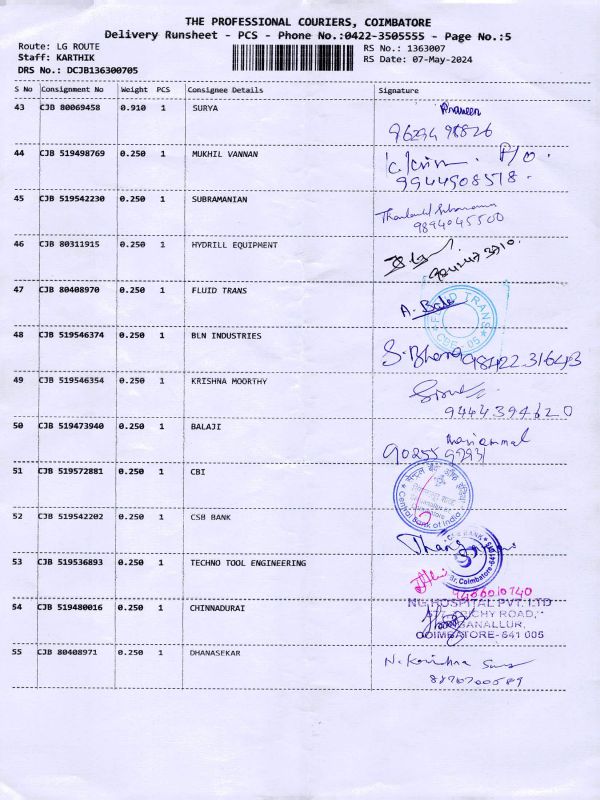 THE PROFESSIONAL COURIERS, COIMBATORE
Delivery Runsheet - PCS - Phone No.:0422-3505555 - Page No.:5
Route: LG ROUTE
Staff: KARTHIK
DRS No.: DCJB136300705
RS No.: 1363007
RS Date: 07-May-2024
S No Consignment No Weight PCS Consignee Details Signature
43 CJB 80069458 0.910 1 SURYA Praveen
44 CJB 519498769 0.250 1 MUKHIL VANNAN P/O
9944908518
45 CJB 519542230 0.250 1 SUBRAMANIAN
9894045500
46 CJB 80311915 0.250 1 HYDRILL EQUIPMENT
47 CJB 80408970 0.250 1 FLUID TRANS A. Bala
FLUID TRANS
CBE - 05
48 CJB 519546374 0.250 1 BLN INDUSTRIES
9842231643
49 CJB 519546354 0.250 1 KRISHNA MOORTHY
9444394620
50 CJB 519473940 0.250 1 BALAJI Mariammal
51 CJB 519572881 0.250 1 CBI
Central Bank of India
52 CJB 519542202 0.250 1 CSB BANK
Br. Coimbatore-641
53 CJB 519536893 0.250 1 TECHNO TOOL ENGINEERING
54 CJB 519480016 0.250 1 CHINNADURAI
NG HOSPITAL PVT. LTD
TRICHY ROAD,
COIMBATORE-641 005
55 CJB 80408971 0.250 1 DHANASEKAR